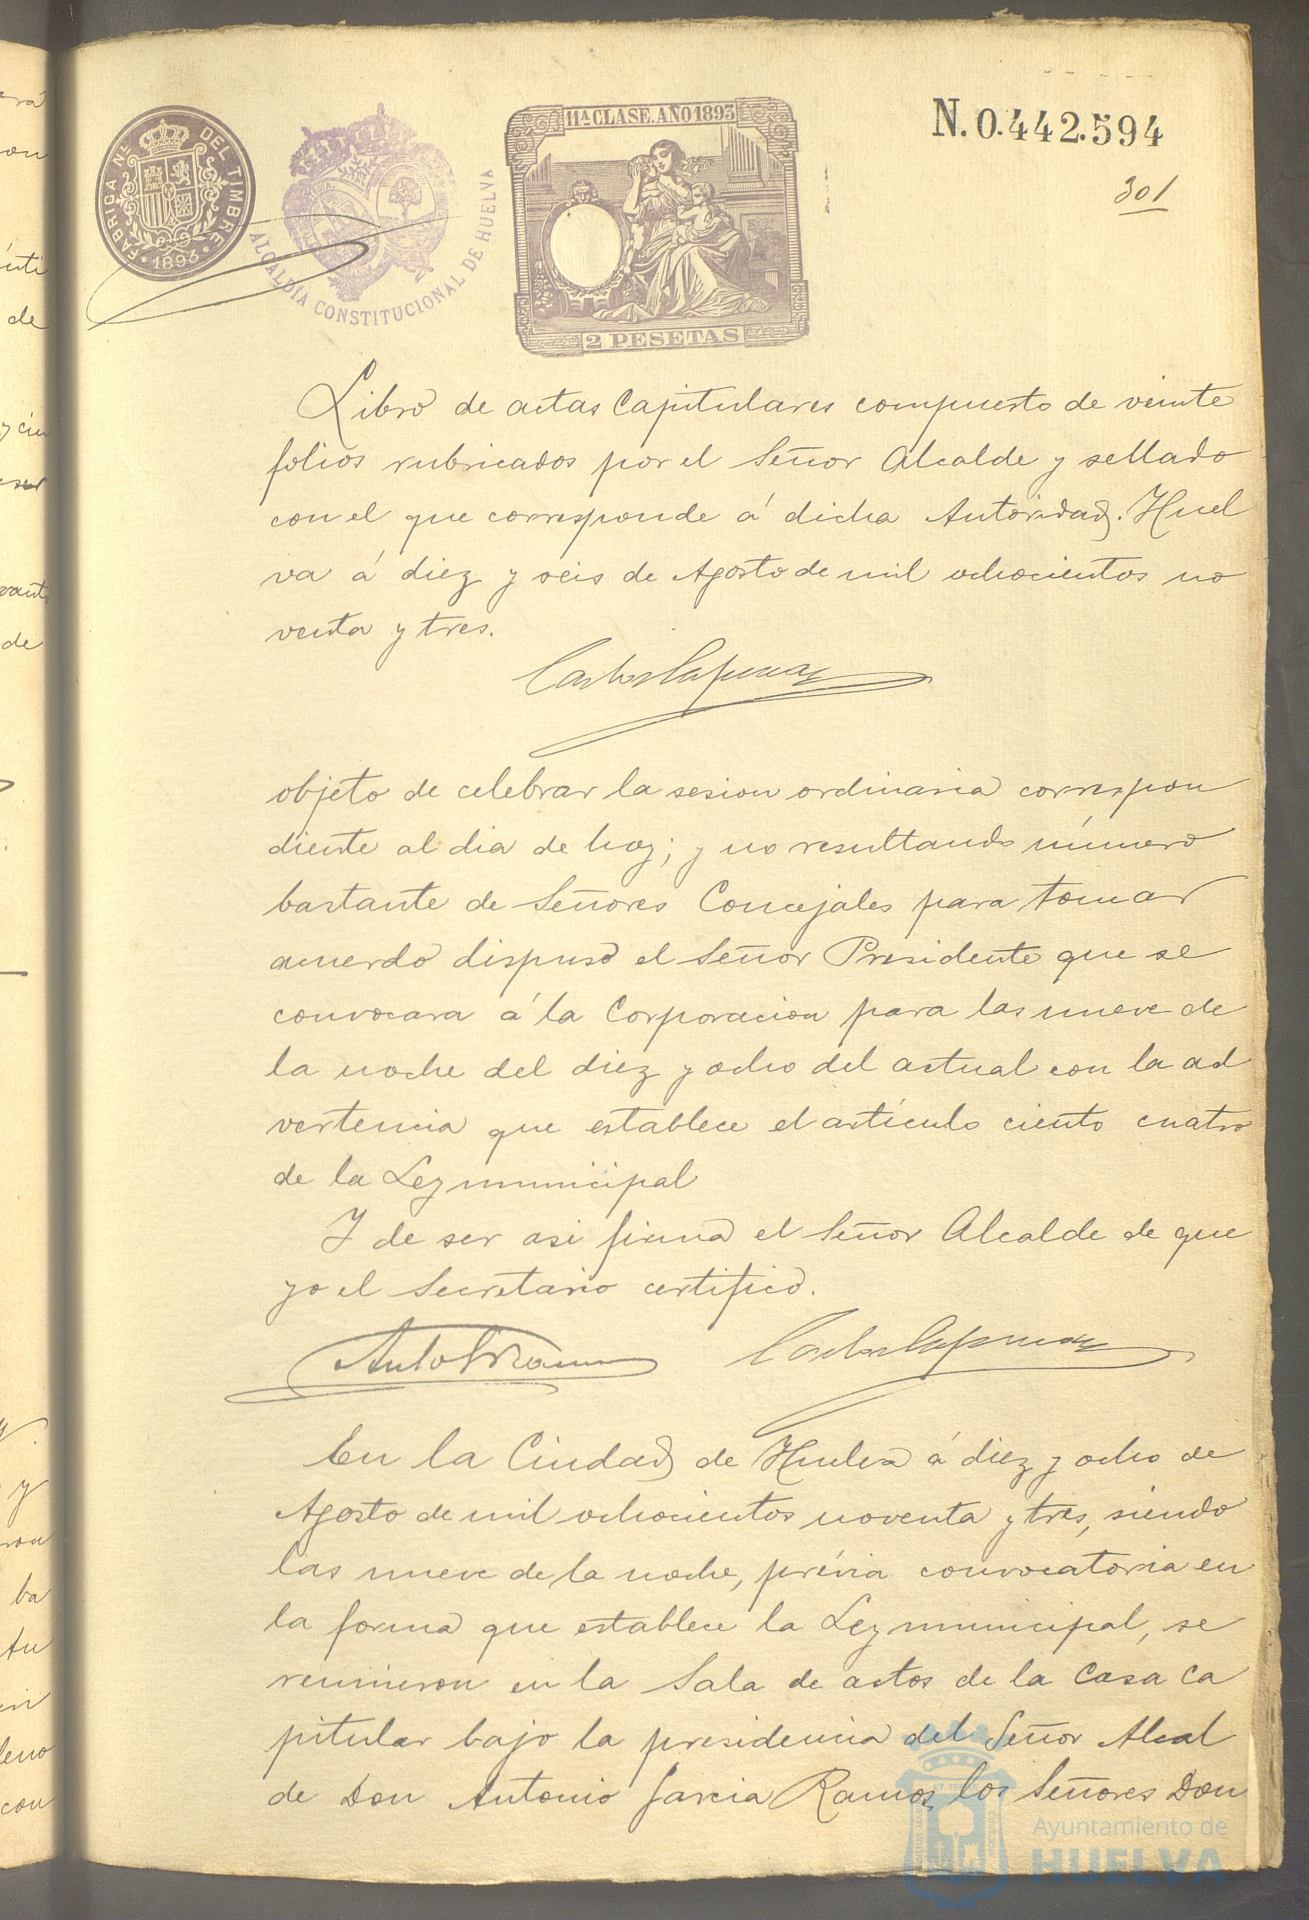 FABRICA Nal DEL TIMBRE
1893
ALCALDÍA CONSTITUCIONAL DE HUELVA
11ª CLASE. AÑO 1893
2 PESETAS
N. 0.442.594
301
Libro de actas Capitulares compuesto de veinte
folios rubricados por el Señor Alcalde y sellado
con el que corresponde á dicha Autoridad. Huel
va á diez y seis de Agosto de mil ochocientos no
venta y tres.
objeto de celebrar la sesion ordinaria correspon
diente al dia de hoy; y no resultando número
bastante de Señores Concejales para tomar
acuerdo dispuso el Señor Presidente que se
convocara á la Corporacion para las nueve de
la noche del diez y ocho del actual con la ad
vertencia que establece el artículo ciento cuatro
de la Ley municipal
Y de ser asi firma el Señor Alcalde de que
yo el Secretario certifico.
En la Ciudad de Huelva á diez y ocho de
Agosto de mil ochocientos noventa y tres, siendo
las nueve de la noche, prévia convocatoria en
la forma que establece la Ley municipal, se
reunieron en la Sala de actos de la Casa Ca
pitular bajo la presidencia del Señor Alcal
de Don Antonio Garcia Ramos, los Señores Don
Ayuntamiento de
HUELVA